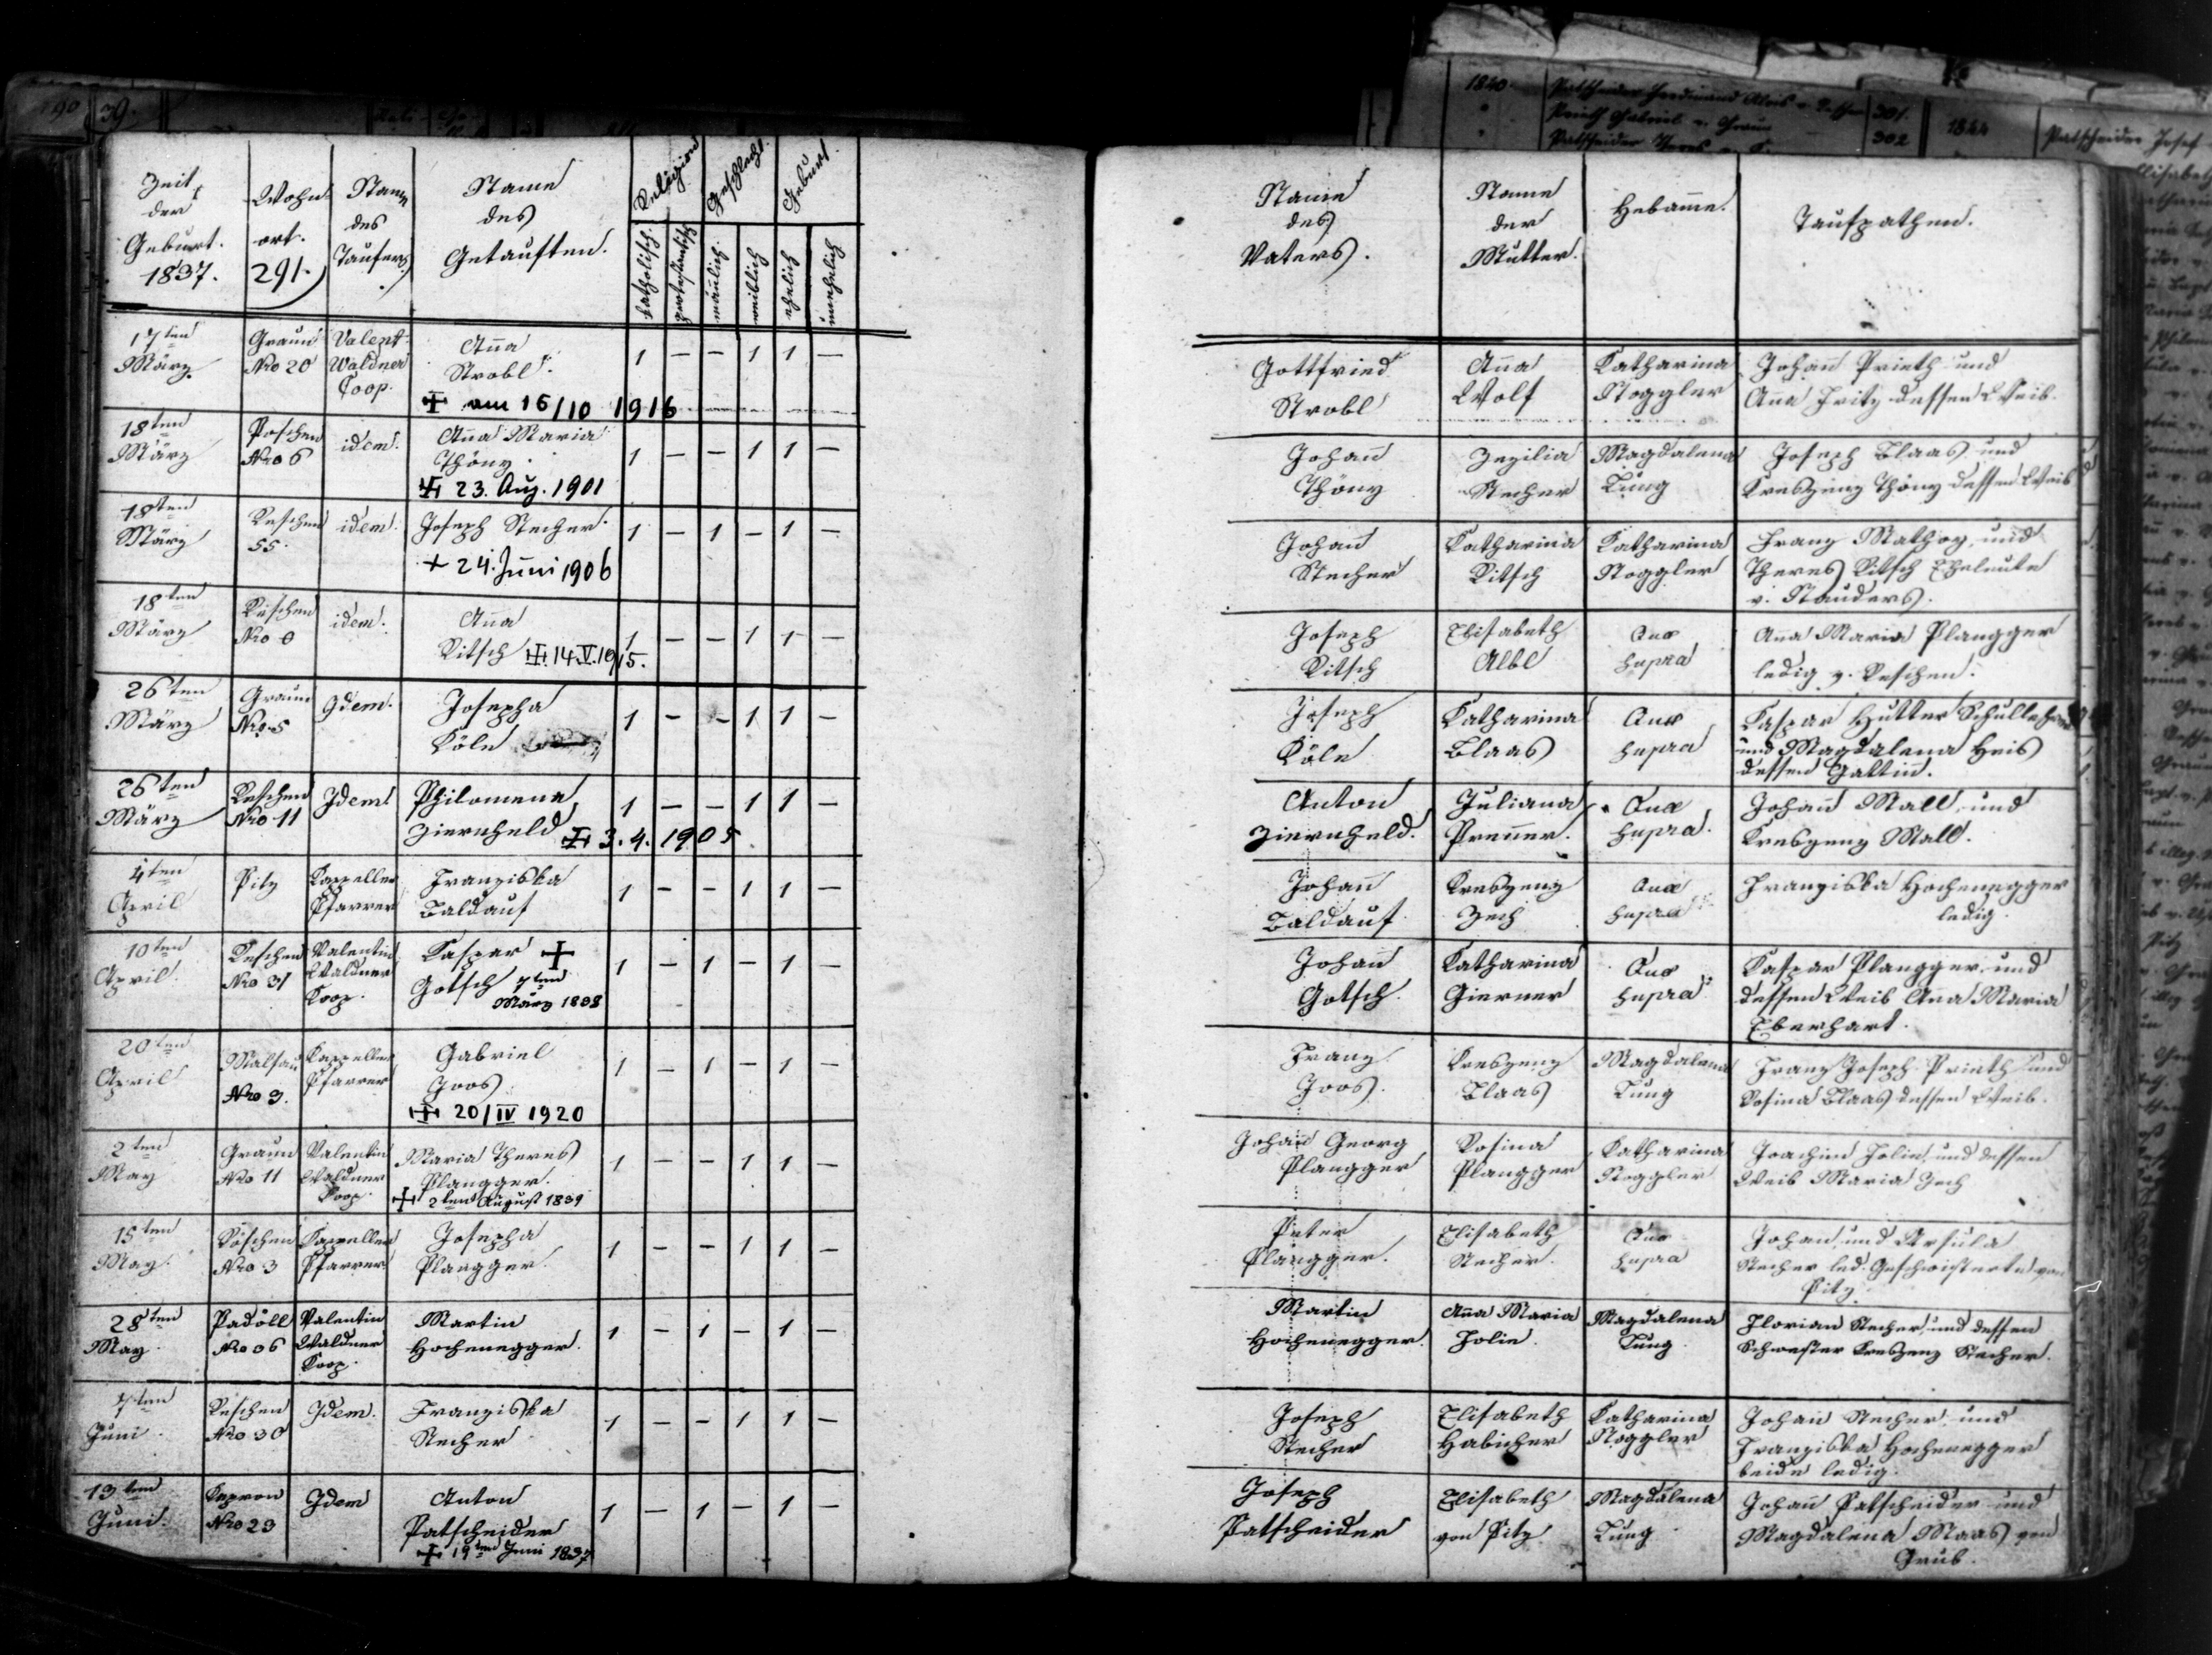 190 39.
Zeit der Geburt. 1837.
Wohn-ort. 291.
Name des Taufers
Name des Getauften.
Religion
katholisch. protestantisch
Geschlecht.
mänlich. weiblich
Geburt.
ehelich unehelich
17ten März
Graun Nro 20
Valent. Waldner Coop.
Aña Strobl.
✝ am 16/10 1916
1 – – 1 1 –
18ten März
Nro 6
idem.
Aña Maria Thöny.
✝ 23. Aug. 1901
1 – – 1 1 –
18ten März
Reschen 55.
idem.
Joseph Stecher.
+ 24. Juni 1906
1 – 1 – 1 –
18ten März
Reschen
idem.
Aña Ritsch ✝ 14.V.1915.
1 – – 1 1 –
26ten März
Graun Nro 5
Idem.
Josepha Köle
1 – – 1 1 –
26ten März
Reschen Nro 11
Idem
Philomena Ziernheld ✝ 3.4.1905
1 – – 1 1 –
4ten April
Pitz
Kappeller Pfarrer
Franziska Baldauf
1 – – 1 1 –
10ten April
Reschen Nro 31
Valentin Waldner Koop.
Kaspar Gotsch ✝
7ten März 1838
1 – 1 – 1 –
20ten April
Nro 3.
Kappeller Pfarrer
Gabriel Joos
✝ 20/IV 1920
1 – 1 – 1 –
2ten May
Graun Nro 11
Valentin Waldner Koop.
Maria Theres Plangger.
✝ 2ten August 1839
1 – – 1 1 –
15ten May.
Röschen Nro 3
Kappeller Pfarrer
Josepha Plangger.
1 – – 1 1 –
28ten May
Padöll Nro 06
Valentin Waldner Koop.
Martin Hochenegger.
1 – 1 – 1 –
7ten Juni.
Reschen Nro 30
Idem.
Franziska Stecher
1 – – 1 1 –
13ten Juni.
Kapron Nro 23
Idem
Anton Patscheider
✝ 19ten Juni 1837
1 – 1 – 1 –
1840.
301.
302
1844
Patscheider Josef
Name des Vaters.
Name der Mutter.
Hebame.
Taufpathen.
Gottfried Strobl
Aña Wolf
Katharina Noggler
Johañ Prieth und
Aña Fritz dessen Weib.
Johañ Thöny
Zezilia Stecher
Magdalena Lung
Joseph Blaas und
Kreszenz Thöny dessen Weib
Johañ Stecher
Katharina Ritsch
Katharina Noggler
Franz Mathoy und
Theres Ritsch Eheleute
v. Nauders.
Joseph Ritsch
Elisabeth Albl
Quæ supra
Aña Maria Plangger
ledig v. Reschen.
Joseph Köle
Katharina Blaas
Quæ supra
Kaspar Hutter Schullehrer
und Magdalena Heis
dessen Gattiñ.
Anton Ziernheld.
Juliana Preñer.
Quæ supra.
Johañ Mall und
Kreszenz Mall.
Johañ Baldauf
Kreszenz Zech
Quæ supra
Franziska Hochenegger
ledig.
Johañ Gotsch.
Katharina Zierner
Quæ supra
Kaspar Plangger und
dessen Weib Aña Maria
Eberhart.
Franz Joos.
Kreszenz Blaas
Magdalena Lung
Franz Joseph Prieth und
Rosina Blaas dessen Weib.
Johañ Georg Plangger
Rosina Plangger
Katharina Noggler
Joachim Folie und dessen
Weib Maria Zech
Peter Plangger.
Elisabeth Stecher.
Quæ supra
Johañ und Ursula
Stecher led. Geschwisterte von
Pitz.
Martin Hochenegger.
Aña Maria Folie.
Magdalena Lung
Florian Stecher und dessen
Schwester Kreszenz Stecher.
Joseph Stecher
Elisabeth Habicher
Katharina Noggler
Johañ Stecher und
Franziska Hochenegger
beide ledig.
Joseph Patscheider
Elisabeth von Pitz
Magdalena Lung
Johañ Patscheider und
Magdalena Maas von
Grub.